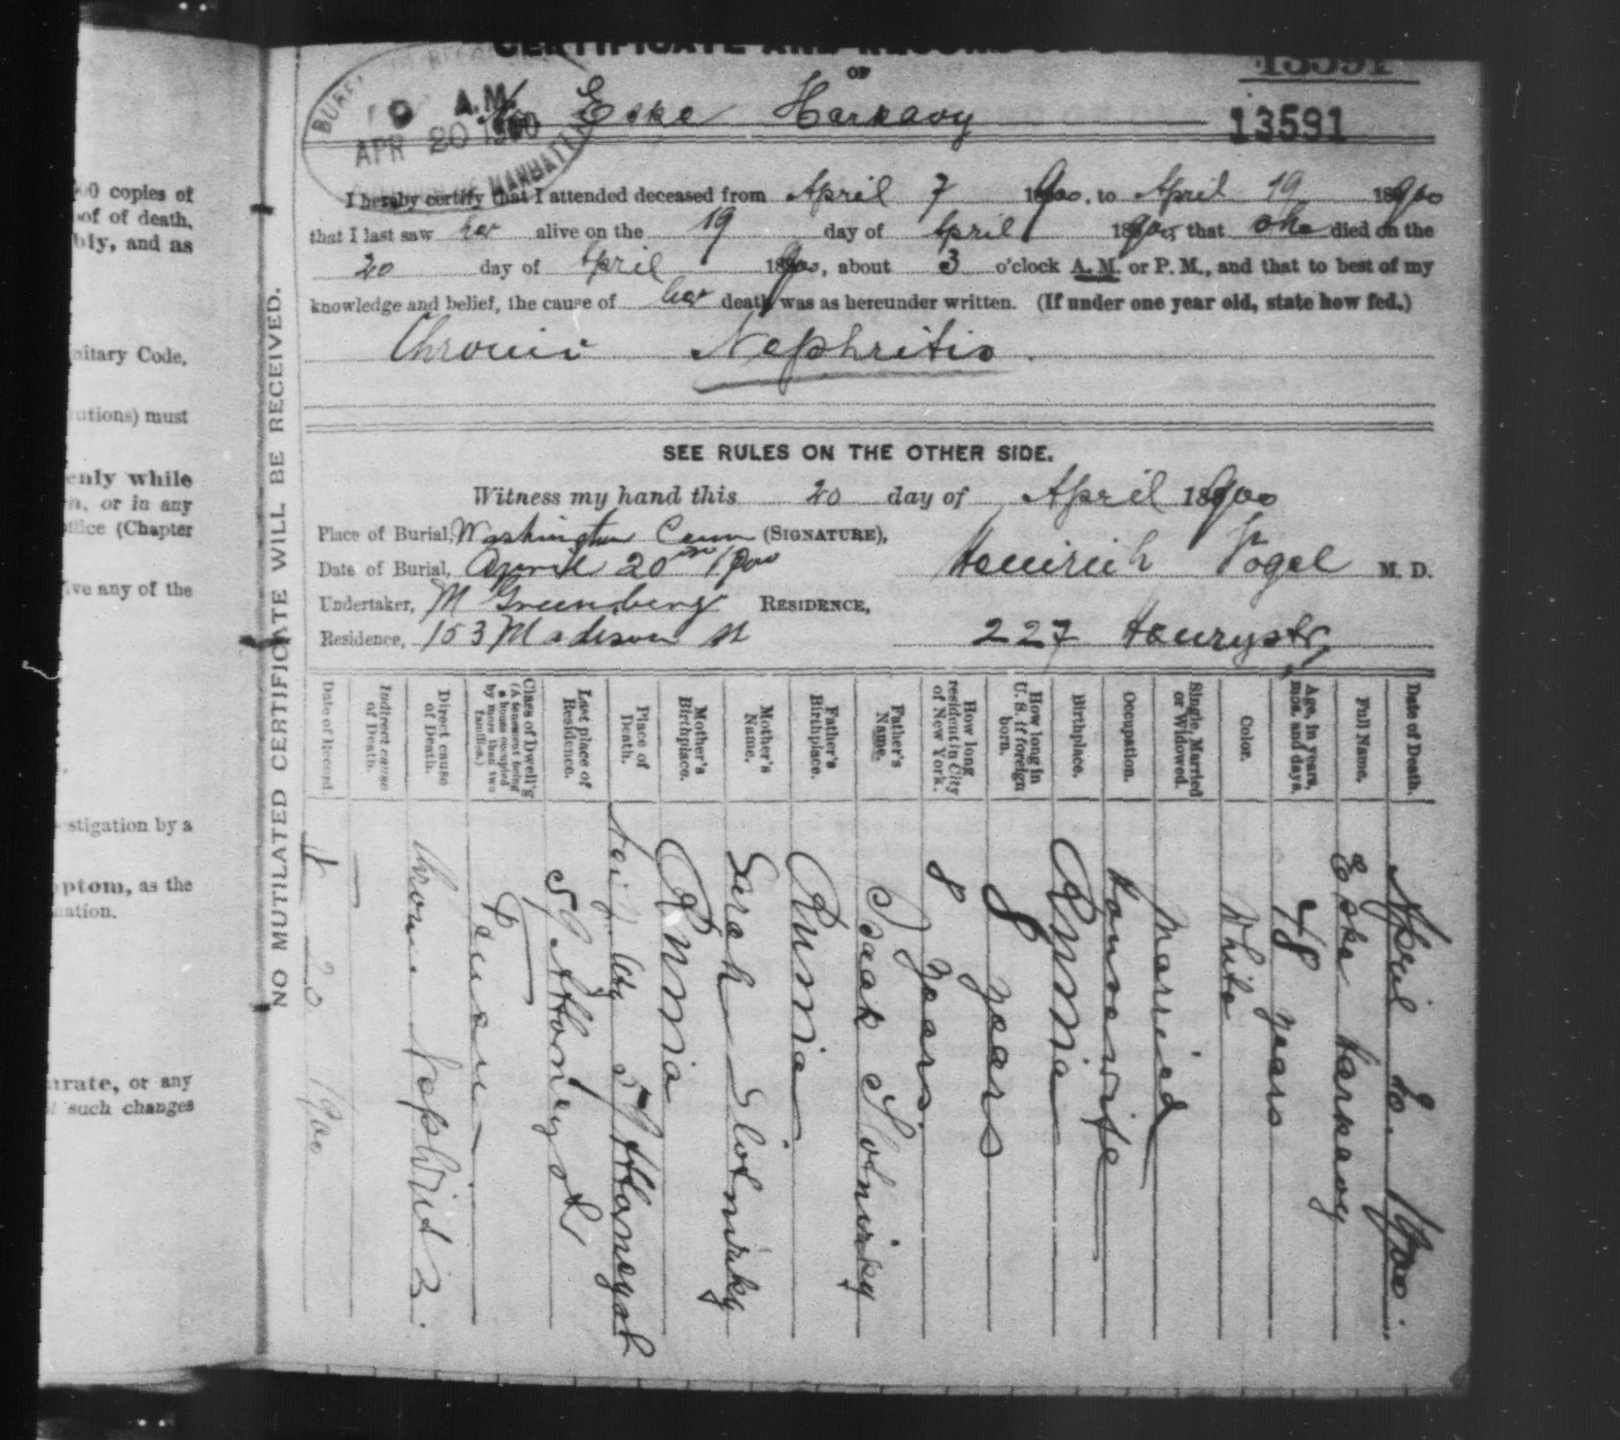 CERTIFICATE AND RECORD OF
OF
13591
Eske Harkavy
13591
A.M.
APR 20 1900
MANHATTAN
I hereby certify that I attended deceased from April 7 1900, to April 19 1900
that I last saw her alive on the 19 day of April 1900, that she died on the
20 day of April 1900, about 3 o'clock A. M. or P. M., and that to best of my
knowledge and belief, the cause of her death was as hereunder written. (If under one year old, state how fed.)
Chronic Nephritis.
SEE RULES ON THE OTHER SIDE.
Witness my hand this 20 day of April 1900
Place of Burial, Washington Cem (SIGNATURE),
Date of Burial, April 20 1900 Heinrich Vogel M. D.
Undertaker, M Greenberg RESIDENCE,
Residence, 153 Madison st 227 Henry str,
Date of Death. April 20. 1900.
Full Name. Eske Harkavy
Age, in years, mos. and days. 48 years
Color. White
Single, Married or Widowed. Married
Occupation. Housewife
Birthplace. Russia
How long in U. S. if foreign born. 8 years
How long resident in City of New York. 8 years.
Father's Name. Isaak Slotnisky
Father's Birthplace. Russia
Mother's Name. Sarah Slotnisky
Mother's Birthplace. Russia
Place of Death. City 59 Attorney st
Last place of Residence. 59 Attorney str
Class of Dwell'g (A tenement being a house occupied by more than two families.) Tenem
Direct cause of Death. Chronic Nephritis.
Indirect cause of Death.
Date of Record. 20 1900
NO MUTILATED CERTIFICATE WILL BE RECEIVED.
00 copies of
of of death,
bly, and as
nitary Code,
utions) must
enly while
n, or in any
office (Chapter
ive any of the
estigation by a
ptom, as the
nation.
urate, or any
such changes